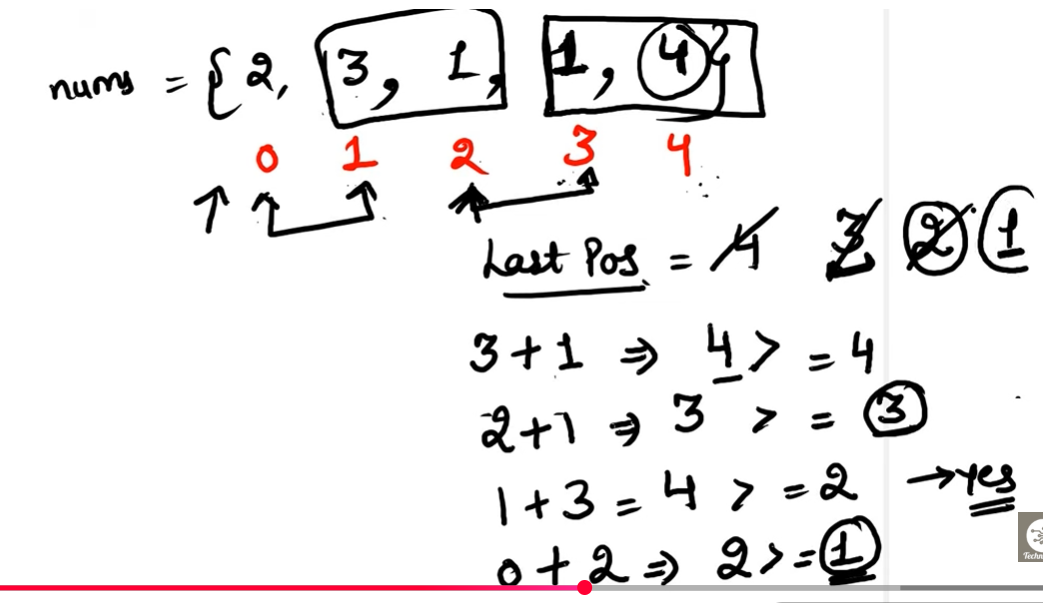 nums = {2, 3, 1, 1, 4}
0 1 2 3 4
Last Pos = 4 3 2 1
3+1 ⇒ 4 > = 4
2+1 ⇒ 3 > = 3
1+3 = 4 > = 2 → yes
0+2 ⇒ 2 > = 1